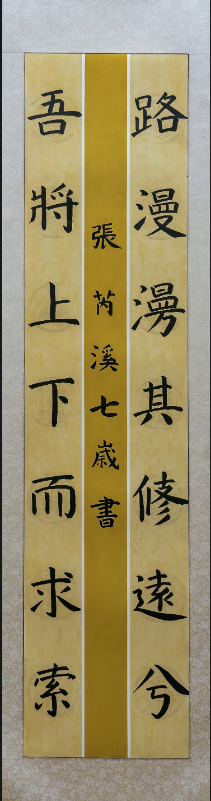 路漫漫其修遠兮
吾將上下而求索
張芮溪七歲書